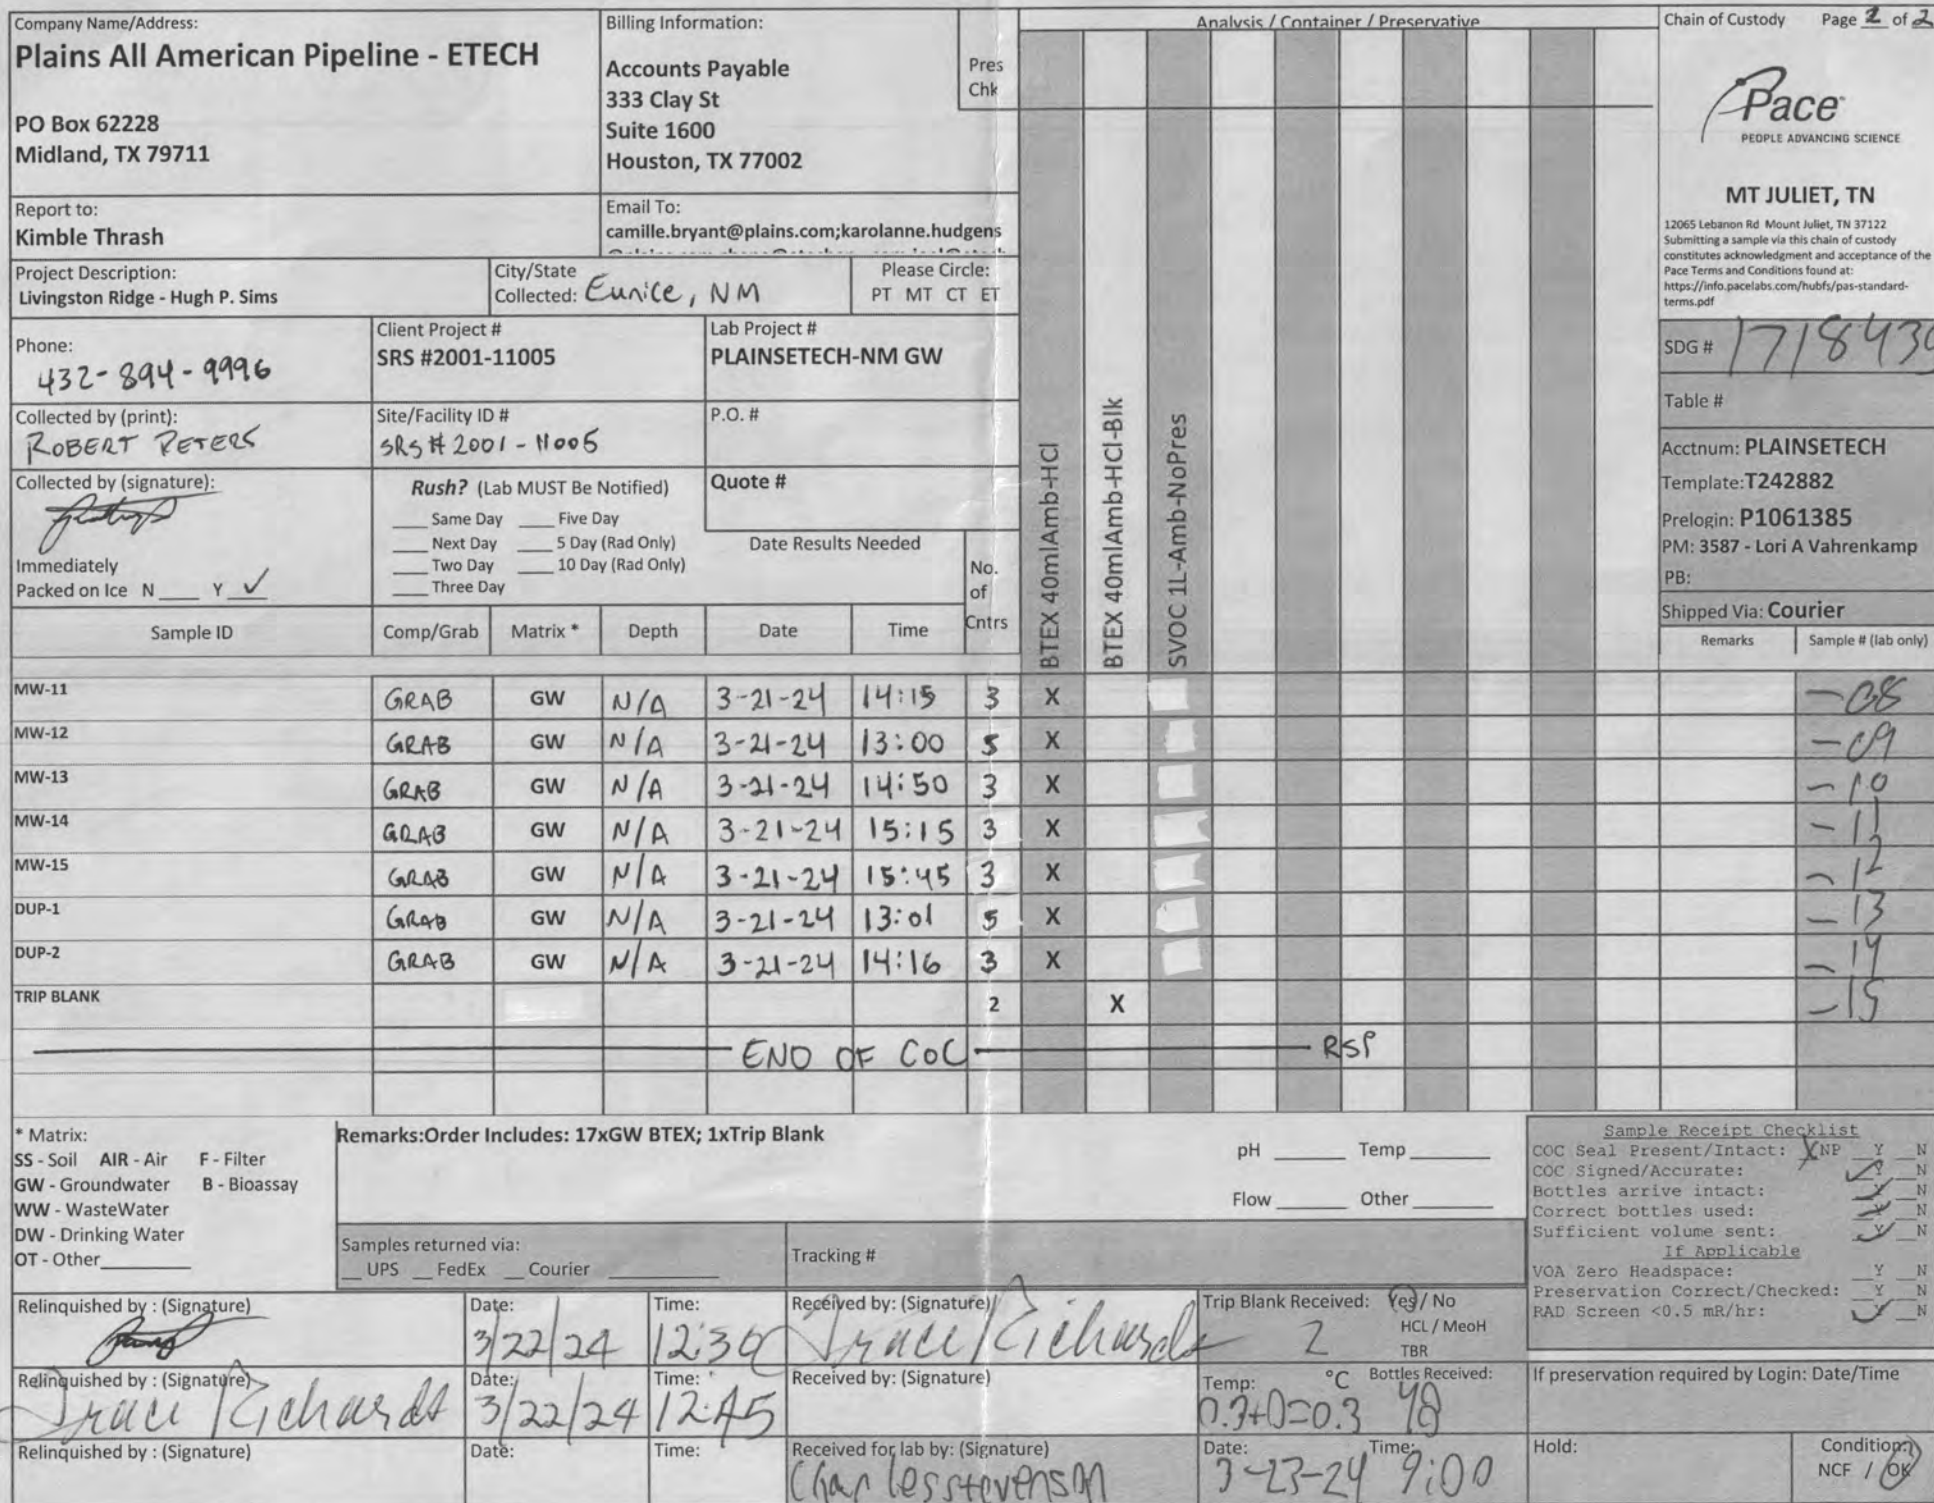 Company Name/Address:
Plains All American Pipeline - ETECH
PO Box 62228
Midland, TX 79711
Billing Information:
Accounts Payable
333 Clay St
Suite 1600
Houston, TX 77002
Pres
Chk
Analysis / Container / Preservative
Chain of Custody Page 2 of 2
Pace
PEOPLE ADVANCING SCIENCE
MT JULIET, TN
12065 Lebanon Rd Mount Juliet, TN 37122
Submitting a sample via this chain of custody
constitutes acknowledgment and acceptance of the
Pace Terms and Conditions found at:
https://info.pacelabs.com/hubfs/pas-standard-
terms.pdf
Report to:
Kimble Thrash
Email To:
camille.bryant@plains.com;karolanne.hudgens
Project Description:
Livingston Ridge - Hugh P. Sims
City/State
Collected: Eunice, NM
Please Circle:
PT MT CT ET
Phone:
432-894-9996
Client Project #
SRS #2001-11005
Lab Project #
PLAINSETECH-NM GW
SDG #
Table #
Collected by (print):
ROBERT PETERS
Site/Facility ID #
SRS # 2001-11005
P.O. #
Acctnum: PLAINSETECH
Template:T242882
Prelogin: P1061385
PM: 3587 - Lori A Vahrenkamp
PB:
Shipped Via: Courier
Collected by (signature):
Immediately
Packed on Ice N ____ Y ✓
Rush? (Lab MUST Be Notified)
____ Same Day ____ Five Day
____ Next Day ____ 5 Day (Rad Only)
____ Two Day ____ 10 Day (Rad Only)
____ Three Day
Quote #
Date Results Needed
No.
of
Cntrs
BTEX 40mlAmb-HCl
BTEX 40mlAmb-HCl-Blk
SVOC 1L-Amb-NoPres
Sample ID Comp/Grab Matrix * Depth Date Time Remarks Sample # (lab only)
MW-11 GRAB GW N/A 3-21-24 14:15 3 X -08
MW-12 GRAB GW N/A 3-21-24 13:00 5 X -09
MW-13 GRAB GW N/A 3-21-24 14:50 3 X -10
MW-14 GRAB GW N/A 3-21-24 15:15 3 X -11
MW-15 GRAB GW N/A 3-21-24 15:45 3 X -12
DUP-1 GRAB GW N/A 3-21-24 13:01 5 X -13
DUP-2 GRAB GW N/A 3-21-24 14:16 3 X -14
TRIP BLANK 2 X -15
END OF COC RSP
* Matrix:
SS - Soil AIR - Air F - Filter
GW - Groundwater B - Bioassay
WW - WasteWater
DW - Drinking Water
OT - Other________
Remarks:Order Includes: 17xGW BTEX; 1xTrip Blank
pH ______ Temp ______
Flow ______ Other ______
Samples returned via:
__ UPS __ FedEx __ Courier
Tracking #
Sample Receipt Checklist
COC Seal Present/Intact: X NP __Y __N
COC Signed/Accurate: ✓Y __N
Bottles arrive intact: ✓Y __N
Correct bottles used: ✓Y __N
Sufficient volume sent: ✓Y __N
If Applicable
VOA Zero Headspace: __Y __N
Preservation Correct/Checked: __Y __N
RAD Screen <0.5 mR/hr: ✓Y __N
Relinquished by : (Signature)
Date: 3/22/24
Time:
Received by: (Signature) Traci Richards
Trip Blank Received: Yes / No
2
HCL / MeoH
TBR
Relinquished by : (Signature) Traci Richards
Date: 3/22/24
Time: 12:45
Received by: (Signature)
Temp: °C Bottles Received:
0.3+0=0.3 48
If preservation required by Login: Date/Time
Relinquished by : (Signature)
Date:
Time:
Received for lab by: (Signature)
Charles Stevenson
Date: 3-23-24
Time: 9:00
Hold:
Condition:
NCF / OK